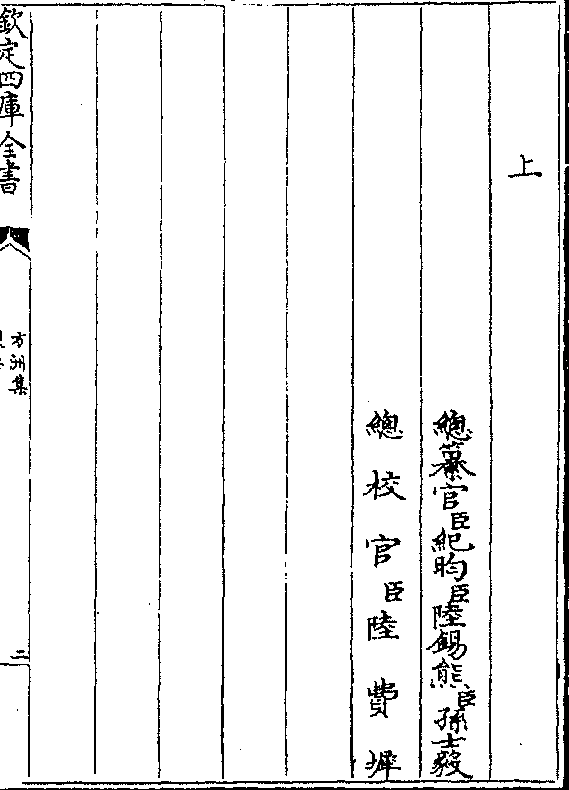 上
總纂官臣紀昀臣陸錫熊臣孫士毅
總校官臣陸費墀
欽定四庫全書
方洲集
二